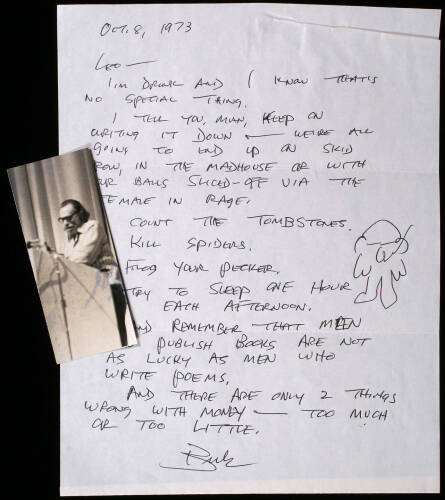 Oct. 8, 1973
Leo —
I'm drunk and I know that's
no special thing.
I tell you, man, keep on
writing it down — we're all
going to end up on skid
row, in the madhouse or with
our balls sliced-off via the
female in rage.
Count the tombstones.
Kill spiders.
Flog your pecker.
Try to sleep one hour
each afternoon.
And remember that men
publish books are not
as lucky as men who
write poems.
And there are only 2 things
wrong with money — too much
or too little.
Buk